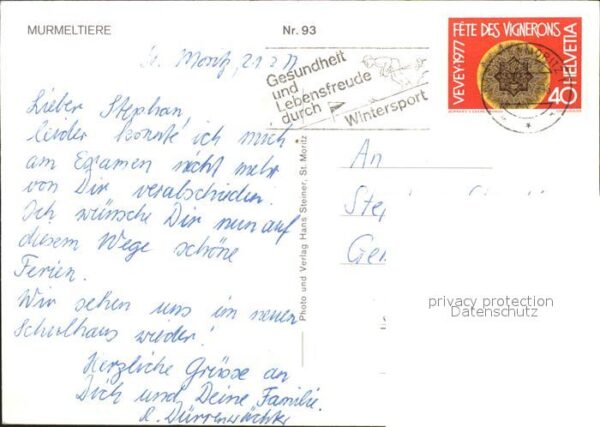 MURMELTIERE
Nr. 93
St. Moritz, 21 2 77
Lieber Stephan,
leider konnte ich mich
am Examen nicht mehr
von Dir verabschieden.
Ich wünsche Dir nun auf
diesem Wege schöne
Ferien.
Wir sehen uns im neuen
Schulhaus wieder!
Herzliche Grüsse an
Dich und Deine Familie.
R. Dürrenwächter
Photo und Verlag Hans Steiner, St. Moritz
Gesundheit
und
Lebensfreude
durch
Wintersport
FÊTE DES VIGNERONS
VEVEY-1977
HELVETIA
40
ST. MORITZ
An
Ste
Ge
privacy protection
Datenschutz